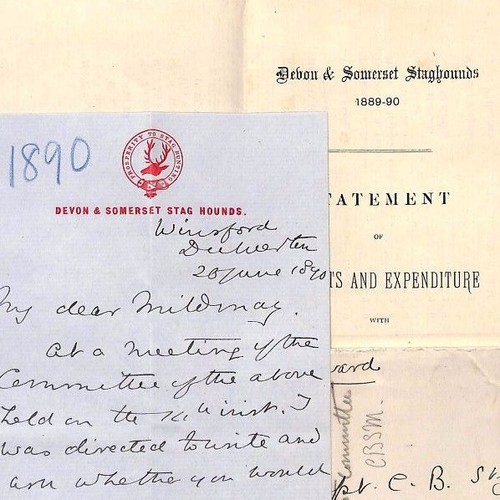 Devon & Somerset Staghounds
1889-90
TATEMENT
OF
TS AND EXPENDITURE
WITH
1890
PROSPERITY TO STAG HUNTING
DEVON & SOMERSET STAG HOUNDS.
Winsford
Dulverton
20 June 1890
My dear Mildmay.
At a meeting of the
Committee of the above
held on the inst. I
was directed to write and
ask whether you would
ward
Committee
CBSM.
pt. C. B. St